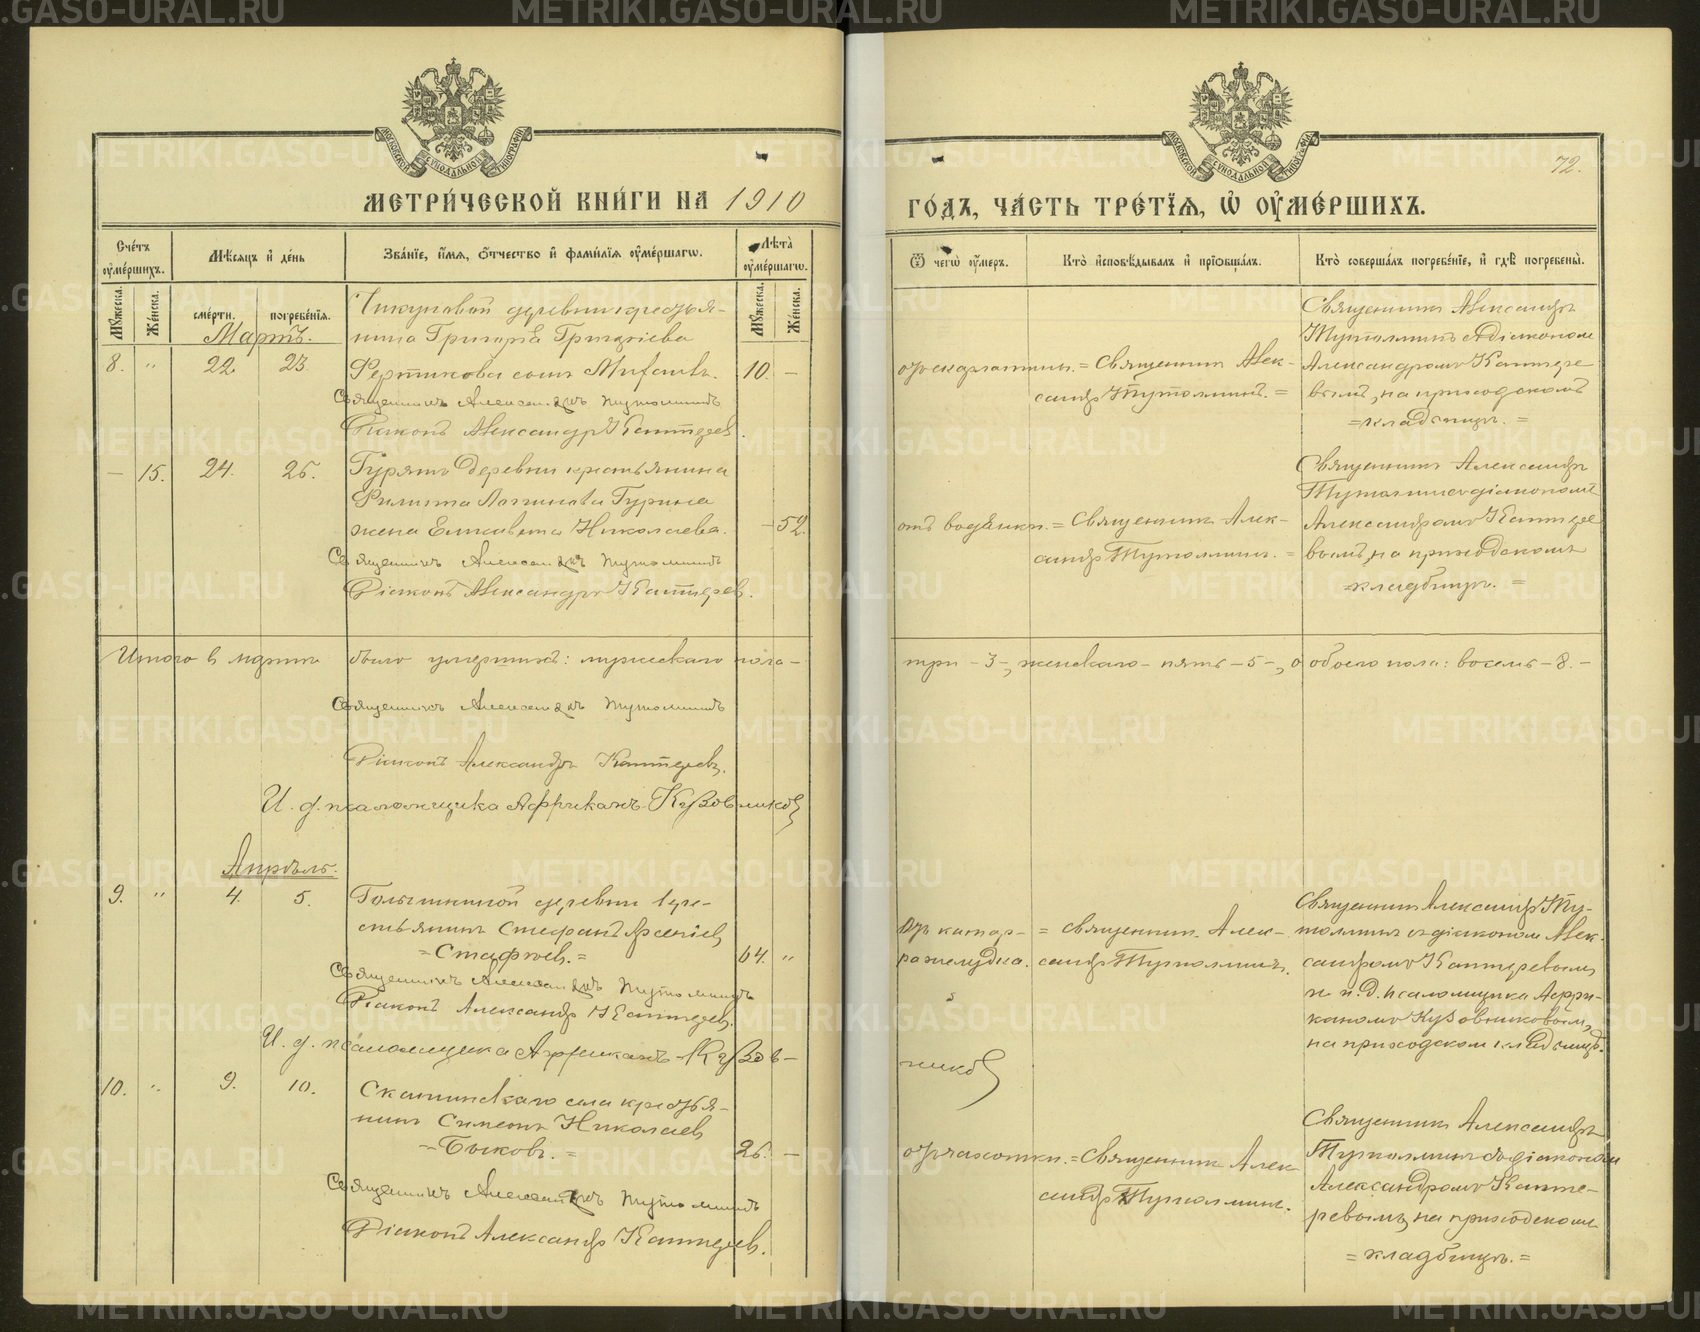 МЕТРИ́ЧЕСКОЙ КНИ́ГИ НА 1910
ГО́ДЪ, ЧА́СТЬ ТРЕ́ТІѦ, Ѡ ОУМЕ́РШИХЪ.
72.
Сче́тъ оуме́ршихъ.
Мѣ́сяцъ и де́нь
Зва́ніе, и́мя, о́тчество и фами́лія оуме́ршагѡ.
Лѣта̀ оуме́ршагѡ.
Ѿ чегѡ̀ оу́меръ.
Кто̀ исповѣ́дывалъ и пріобща́лъ.
Кто̀ соверша́лъ погребе́ніе, и гдѣ̀ погребены̀.
Мꙋ́жеска.
Же́нска.
сме́рти.
погребе́нія.
Мꙋ́жеска.
Же́нска.
Мартъ.
8. " 22. 23.
деревни крестья-
нина Григорія Григоріева
сынъ 10. –
Священникъ Александръ Тутолминъ
Діаконъ Александръ Каптеревъ.
отъ скарлатины. = Священникъ Алек-
сандръ Тутолминъ. =
Священникъ Александръ
Тутолминъ съ діакономъ
Александромъ Каптере
вымъ, на приходскомъ
= кладбищѣ. =
– 15. 24. 26.
деревни крестьянина
Филиппа Логинова Гурина
жена Елисавета Николаева. – 52.
Священникъ Александръ Тутолминъ
Діаконъ Александръ Каптеревъ.
отъ водянки. = Священникъ Алек-
сандръ Тутолминъ. =
Священникъ Александръ
Тутолминъ съ діакономъ
Александромъ Каптере
вымъ, на приходскомъ
= кладбищѣ. =
Итого в мартѣ было умершихъ: мужескаго пола –
три – 3 –, женскаго – пять – 5 –, обоего пола: восемь – 8. –
Священникъ Александръ Тутолминъ
Діаконъ Александръ Каптеревъ.
И. д. псаломщика Африканъ Кузовниковъ
Апрѣль.
9. " 4. 5.
деревни кре-
стьянинъ Стефанъ Арсеніев
= Стафѣев. = 64. "
Священникъ Александръ Тутолминъ
Діаконъ Александръ Каптеревъ.
И. д. псаломщика Африканъ Кузов –
никовъ
отъ катар-
ра желудка.
= священникъ Алек-
сандръ Тутолминъ.
Священникъ Александръ Ту-
толминъ съ діакономъ Алек-
сандромъ Каптеревымъ
и и. д. псаломщика Афри-
каномъ Кузовниковымъ,
на приходском кладбищѣ.
10. " 9. 10.
Скатинскаго села крестья-
нинъ Симеонъ Николаев
= Быковъ. = 26. –
Священникъ Александръ Тутолминъ
Діаконъ Александръ Каптеревъ.
отъ чахотки. = Священник Алек
сандръ Тутолминъ.
Священникъ Александръ
Тутолминъ съ діакономъ
Александромъ Капте-
ревымъ, на приходскомъ
= кладбищѣ. =
METRIKI.GASO-URAL.RU